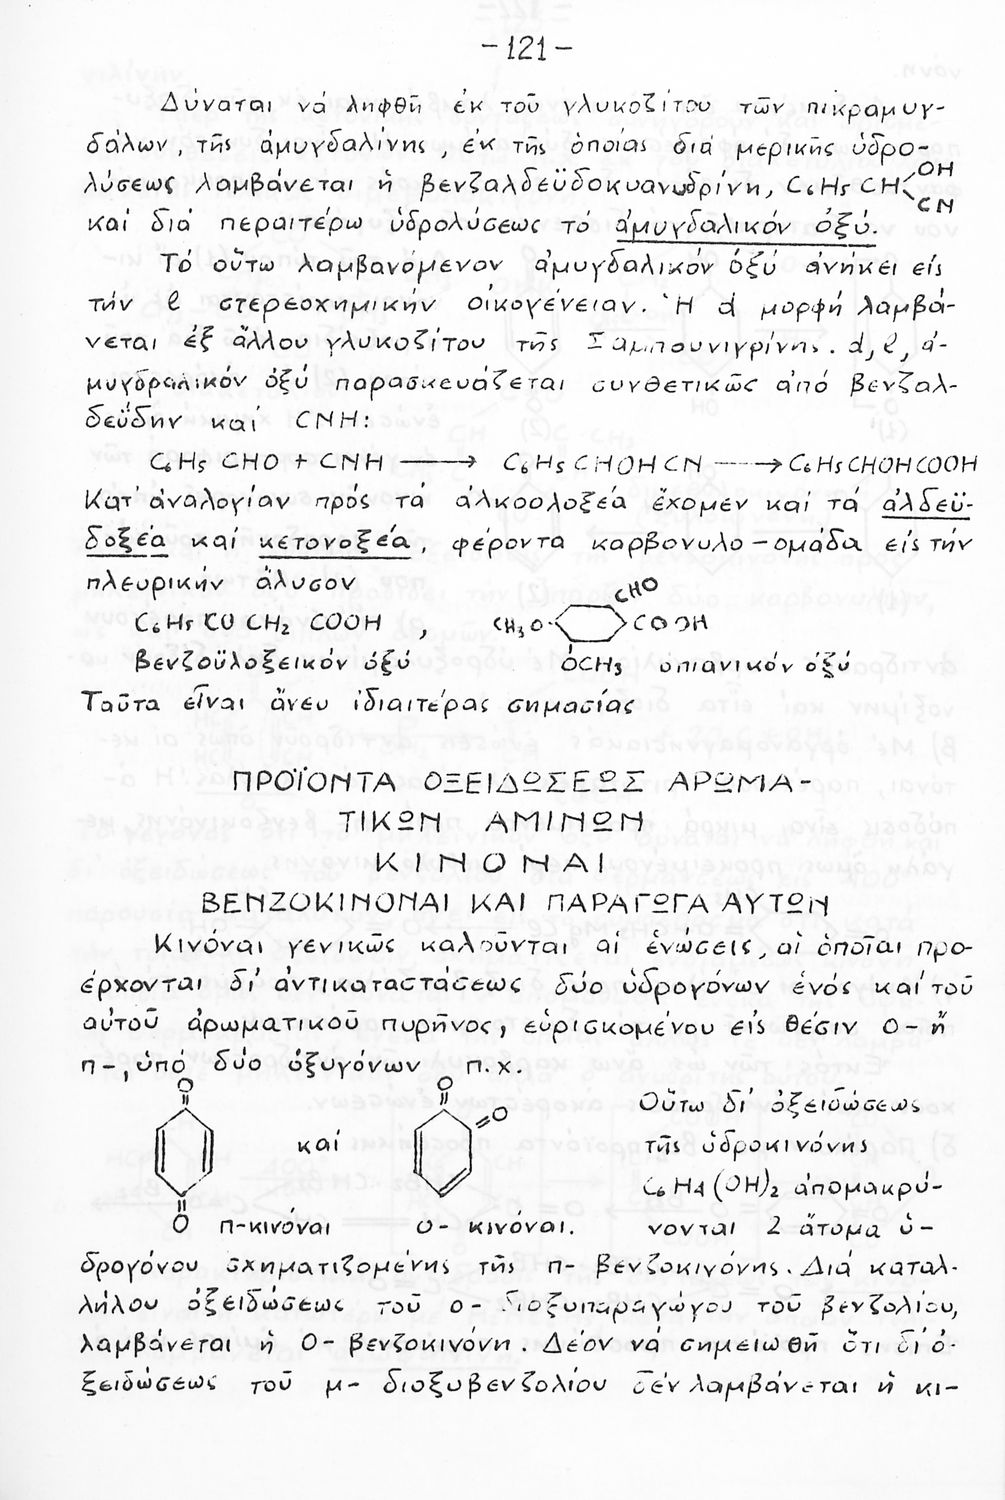 -121-
Δύναται νά ληφθῆ ἐκ τοῦ γλυκοζίτου τῶν πικραμυγ-
δάλων, τῆς ἀμυγδαλίνης, ἐκ τῆς ὁποίας διά μερικῆς ὑδρο-
λύσεως λαμβάνεται ἡ βενζαλδεϋδοκυανυδρίνη, C6H5CH OH CN
καί διά περαιτέρω ὑδρολύσεως τό ἀμυγδαλικόν ὀξύ.
Τό οὕτω λαμβανόμενον ἀμυγδαλικόν ὀξύ ἀνήκει εἰς
τήν l στερεοχημικήν οἰκογένειαν. Ἡ d μορφή λαμβά-
νεται ἐξ ἄλλου γλυκοζίτου τῆς Σαμπουνιγρίνης. d,l, ἀ-
μυγδαλικόν ὀξύ παρασκευάζεται συνθετικῶς ἀπό βενζαλ-
δεΰδην καί CNH:
C6H5CHO + CNH ⟶ C6H5CHOHCN ⟶ C6H5CHOHCOOH
Κατ' ἀναλογίαν πρός τά ἀλκοολοξέα ἔχομεν καί τά ἀλδεϋ-
δοξέα καί κετονοξέα, φέροντα καρβονυλο-ομάδα εἰς τήν
πλευρικήν ἄλυσον
CHO
C6H5 CO CH2 COOH , CH3O COOH
βενζοϋλοξεικόν ὀξύ OCH3 οπιανικόν ὀξύ
Ταῦτα εἶναι ἄνευ ἰδιαιτέρας σημασίας
ΠΡΟΪΟΝΤΑ ΟΞΕΙΔΩΣΕΩΣ ΑΡΩΜΑ-
ΤΙΚΩΝ ΑΜΙΝΩΝ
ΚΙΝΟΝΑΙ
ΒΕΝΖΟΚΙΝΟΝΑΙ ΚΑΙ ΠΑΡΑΓΩΓΑ ΑΥΤΩΝ
Κινόναι γενικῶς καλοῦνται αἱ ἑνώσεις, αἱ ὁποῖαι προ-
έρχονται δι' ἀντικαταστάσεως δύο ὑδρογόνων ἑνός καί τοῦ
αὐτοῦ ἀρωματικοῦ πυρῆνος, εὑρισκομένου εἰς θέσιν ο- ἤ
π-, ὑπό δύο ὀξυγόνων π.χ.
O O O Οὕτω δι' ὀξειδώσεως
καί τῆς ὑδροκινόνης
C6H4(OH)2 ἀπομακρύ-
O π-κινόναι ο- κινόναι. νονται 2 ἄτομα ὑ-
δρογόνου σχηματιζομένης τῆς π- βενζοκινόνης. Διά καταλ-
λήλου ὀξειδώσεως τοῦ ο- διοξυπαραγώγου τοῦ βενζολίου,
λαμβάνεται ἡ Ο- βενζοκινόνη. Δέον νά σημειωθῆ ὅτι δι' ὀ-
ξειδώσεως τοῦ μ- διοξυβενζολίου δέν λαμβάνεται ἡ κι-